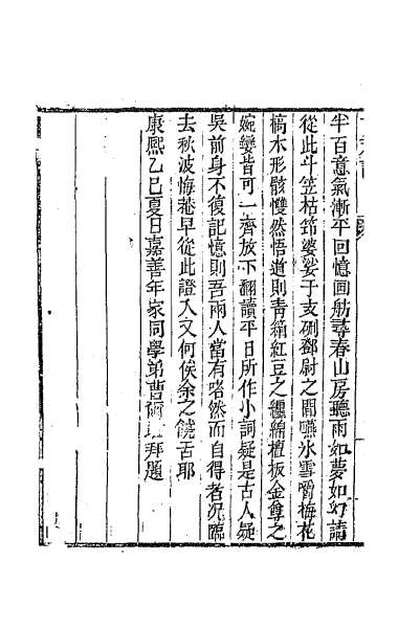 半百意氣漸平回憶画舫尋春山房聽雨如夢如幻請
從此斗笠枯筇婆娑于支硎鄧尉之間嚥氷雪嚼梅花
槁木形骸雙然悟道則青箱紅豆之纏綿檀板金尊之
婉孌皆可一齊放下翻讀平日所作小詞疑是古人疑
吳前身不復記憶則吾兩人當有咯然而自得者况臨
去秋波悔菴早從此證入又何俟余之饒舌耶
康熙乙巳夏日嘉善年家同學弟曹爾堪拜題